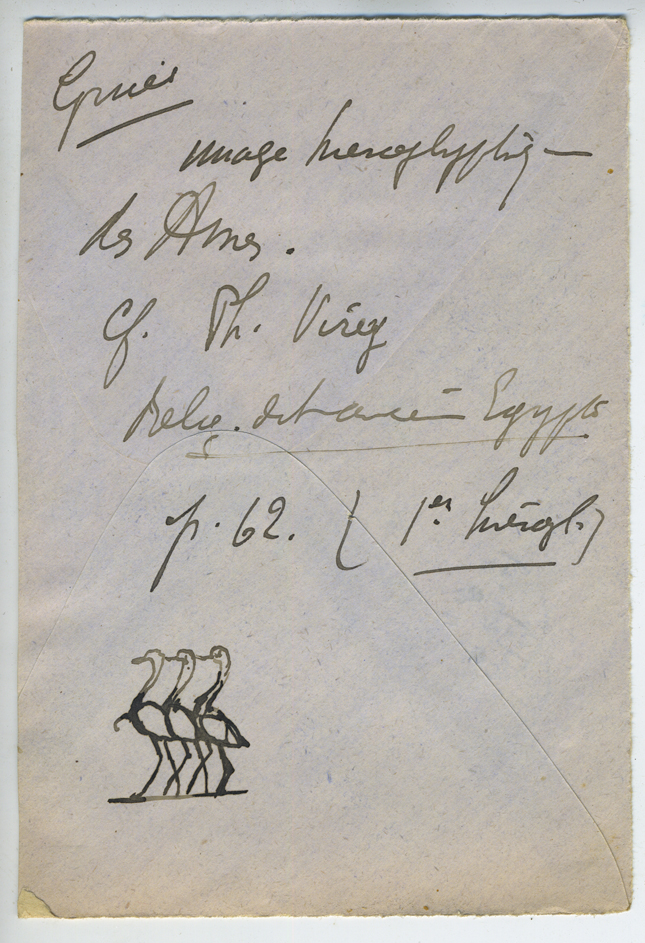 Grues
image hieroglyphiq
des Ames.
Cf. Ph. Virey
Relig. de l'ancien Egypte
p. 62. ( 1er hiérogl.)